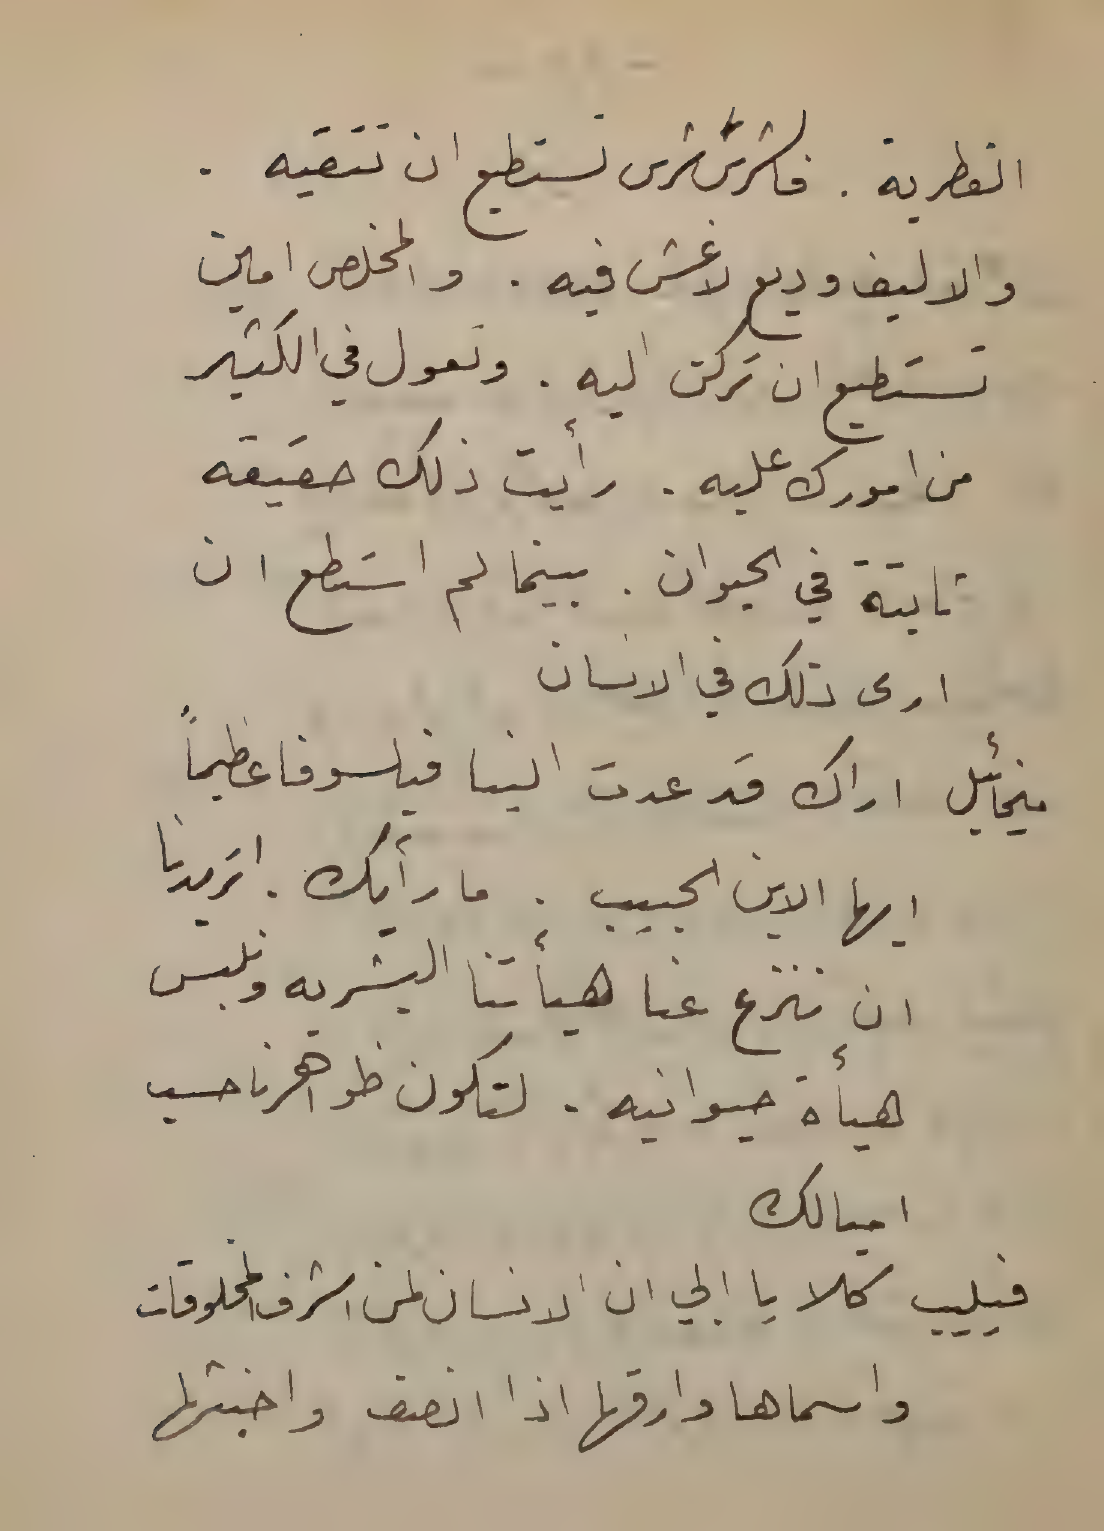 الفطرية . فالشرس شرس تستطيع ان تتقيه .
والاليف وديع لا غش فيه . والمخلص امين
تستطيع ان تركن اليه . وتعول في الكثير
من امورك عليه . رأيت ذلك حقيقه
ثابتة في الحيوان . بينما لم استطع ان
ارى ذلك في الانسان
ميخائيل اراك قد عدت الينا فيلسوفا عظيماً
ايها الابن الحبيب . ما رأيك . اتريدنا
ان ننزع عنا هيأتنا البشريه ونلبس
هيأة حيوانيه . لتكون ظواهرنا حسب
اميالك
فيليب كلا يا ابي ان الانسان لمن اشرف المخلوقات
واسماها وارقها اذا انصف واخبثها